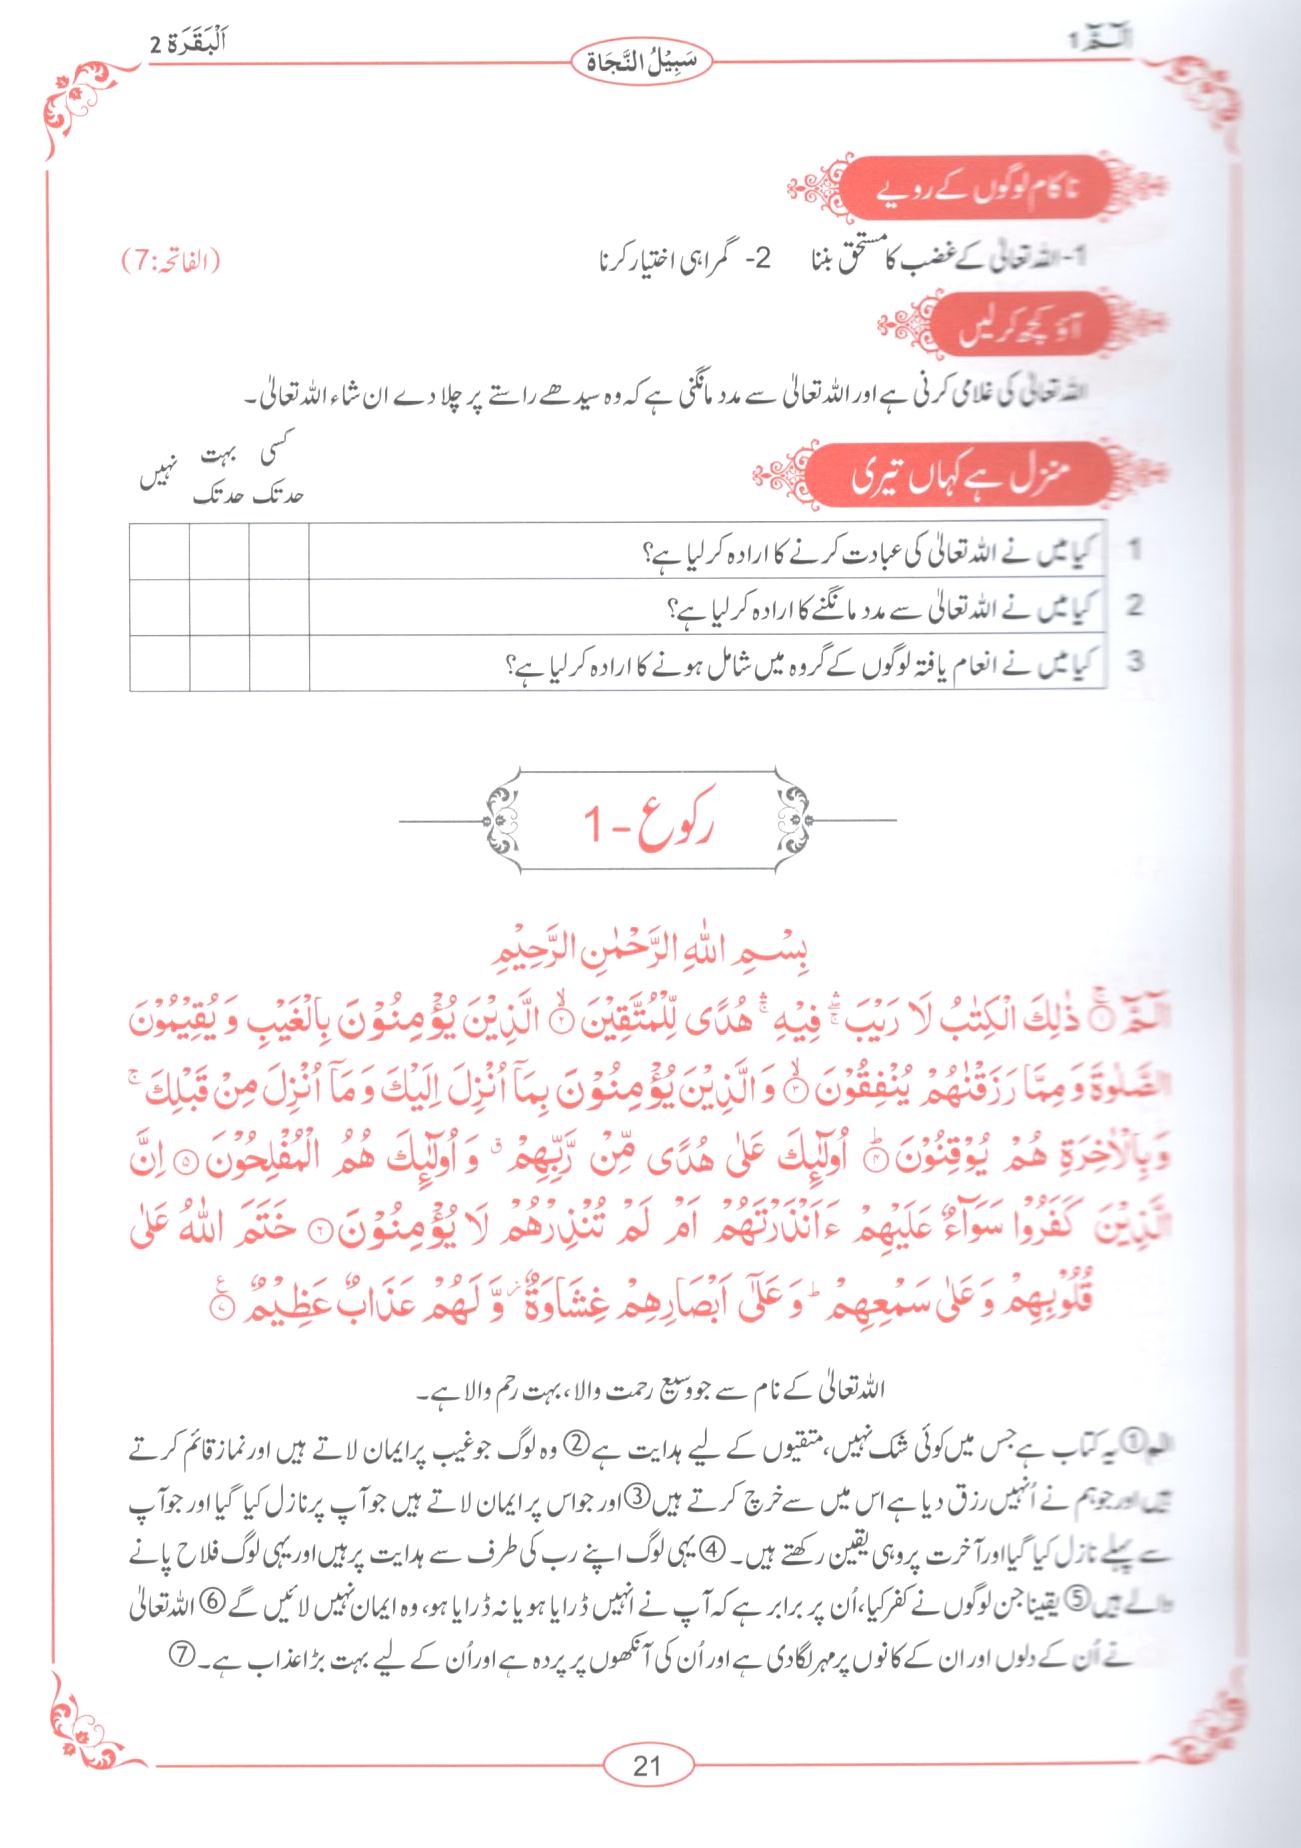 الٓمّٓ 1
سَبِیْلُ النَّجَاة
اَلْبَقَرَة 2
ناکام لوگوں کے رویے
1- اللہ تعالیٰ کے غضب کا مستحق بننا 2- گمراہی اختیار کرنا (الفاتحہ:7)
آؤ کچھ کرلیں
اللہ تعالیٰ کی غلامی کرنی ہے اور اللہ تعالیٰ سے مدد مانگنی ہے کہ وہ سیدھے راستے پر چلا دے ان شاء اللہ تعالیٰ۔
منزل ہے کہاں تیری
کسی حد تک
بہت حد تک
نہیں
1 کیا میں نے اللہ تعالیٰ کی عبادت کرنے کا ارادہ کرلیا ہے؟
2 کیا میں نے اللہ تعالیٰ سے مدد مانگنے کا ارادہ کرلیا ہے؟
3 کیا میں نے انعام یافتہ لوگوں کے گروہ میں شامل ہونے کا ارادہ کرلیا ہے؟
رکوع - 1
بِسْمِ اللّٰهِ الرَّحْمٰنِ الرَّحِیْمِ
الٓمّٓ ۚ﴿۱﴾ ذٰلِكَ الْكِتٰبُ لَا رَیْبَ ۛۖ فِیْهِ ۛۚ هُدًی لِّلْمُتَّقِیْنَ ۙ﴿۲﴾ الَّذِیْنَ یُؤْمِنُوْنَ بِالْغَیْبِ وَ یُقِیْمُوْنَ
الصَّلٰوةَ وَ مِمَّا رَزَقْنٰهُمْ یُنْفِقُوْنَ ۙ﴿۳﴾ وَ الَّذِیْنَ یُؤْمِنُوْنَ بِمَاۤ اُنْزِلَ اِلَیْكَ وَ مَاۤ اُنْزِلَ مِنْ قَبْلِكَ ۚ
وَ بِالْاٰخِرَةِ هُمْ یُوْقِنُوْنَ ؕ﴿۴﴾ اُولٰٓىِٕكَ عَلٰی هُدًی مِّنْ رَّبِّهِمْ ۗ وَ اُولٰٓىِٕكَ هُمُ الْمُفْلِحُوْنَ ﴿۵﴾ اِنَّ
الَّذِیْنَ كَفَرُوْا سَوَآءٌ عَلَیْهِمْ ءَاَنْذَرْتَهُمْ اَمْ لَمْ تُنْذِرْهُمْ لَا یُؤْمِنُوْنَ ﴿۶﴾ خَتَمَ اللّٰهُ عَلٰی
قُلُوْبِهِمْ وَ عَلٰی سَمْعِهِمْ ؕ وَ عَلٰۤی اَبْصَارِهِمْ غِشَاوَةٌ ؗ وَّ لَهُمْ عَذَابٌ عَظِیْمٌ ﴿۷﴾ع
اللہ تعالیٰ کے نام سے جو وسیع رحمت والا، بہت رحم والا ہے۔
الم① یہ کتاب ہے جس میں کوئی شک نہیں، متقیوں کے لیے ہدایت ہے② وہ لوگ جو غیب پر ایمان لاتے ہیں اور نماز قائم کرتے
ہیں اور جو ہم نے اُنہیں رزق دیا ہے اس میں سے خرچ کرتے ہیں③ اور جو اس پر ایمان لاتے ہیں جو آپ پر نازل کیا گیا اور جو آپ
سے پہلے نازل کیا گیا اور آخرت پر وہی یقین رکھتے ہیں۔④ یہی لوگ اپنے رب کی طرف سے ہدایت پر ہیں اور یہی لوگ فلاح پانے
والے ہیں⑤ یقینا جن لوگوں نے کفر کیا، اُن پر برابر ہے کہ آپ نے انہیں ڈرایا ہو یا نہ ڈرایا ہو، وہ ایمان نہیں لائیں گے⑥ اللہ تعالیٰ
نے اُن کے دلوں اور ان کے کانوں پر مہر لگا دی ہے اور اُن کی آنکھوں پر پردہ ہے اور اُن کے لیے بہت بڑا عذاب ہے۔⑦
21